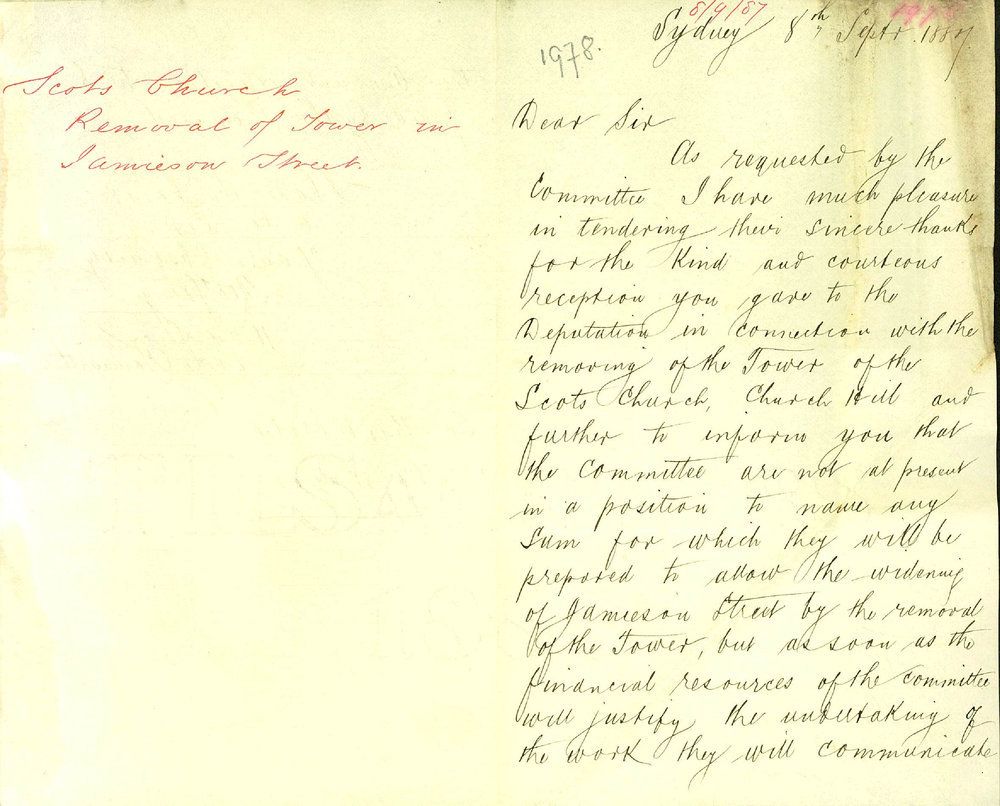 Scots Church
Removal of Tower in
Jamieson Street.
1978.
8/9/87
1978
Sydney 8th Septr. 1887
Dear Sir
As requested by the
Committee I have much pleasure
in tendering their sincere thanks
for the Kind and courteous
reception you gave to the
Deputation in connection with the
removing of the Tower of the
Scots Church, Church Hill and
further to inform you that
the Committee are not at present
in a position to name any
Sum for which they will be
prepared to allow the widening
of Jamieson Street by the removal
of the Tower, but as soon as the
financial resources of the committee
will justify the undertaking of
the work they will communicate